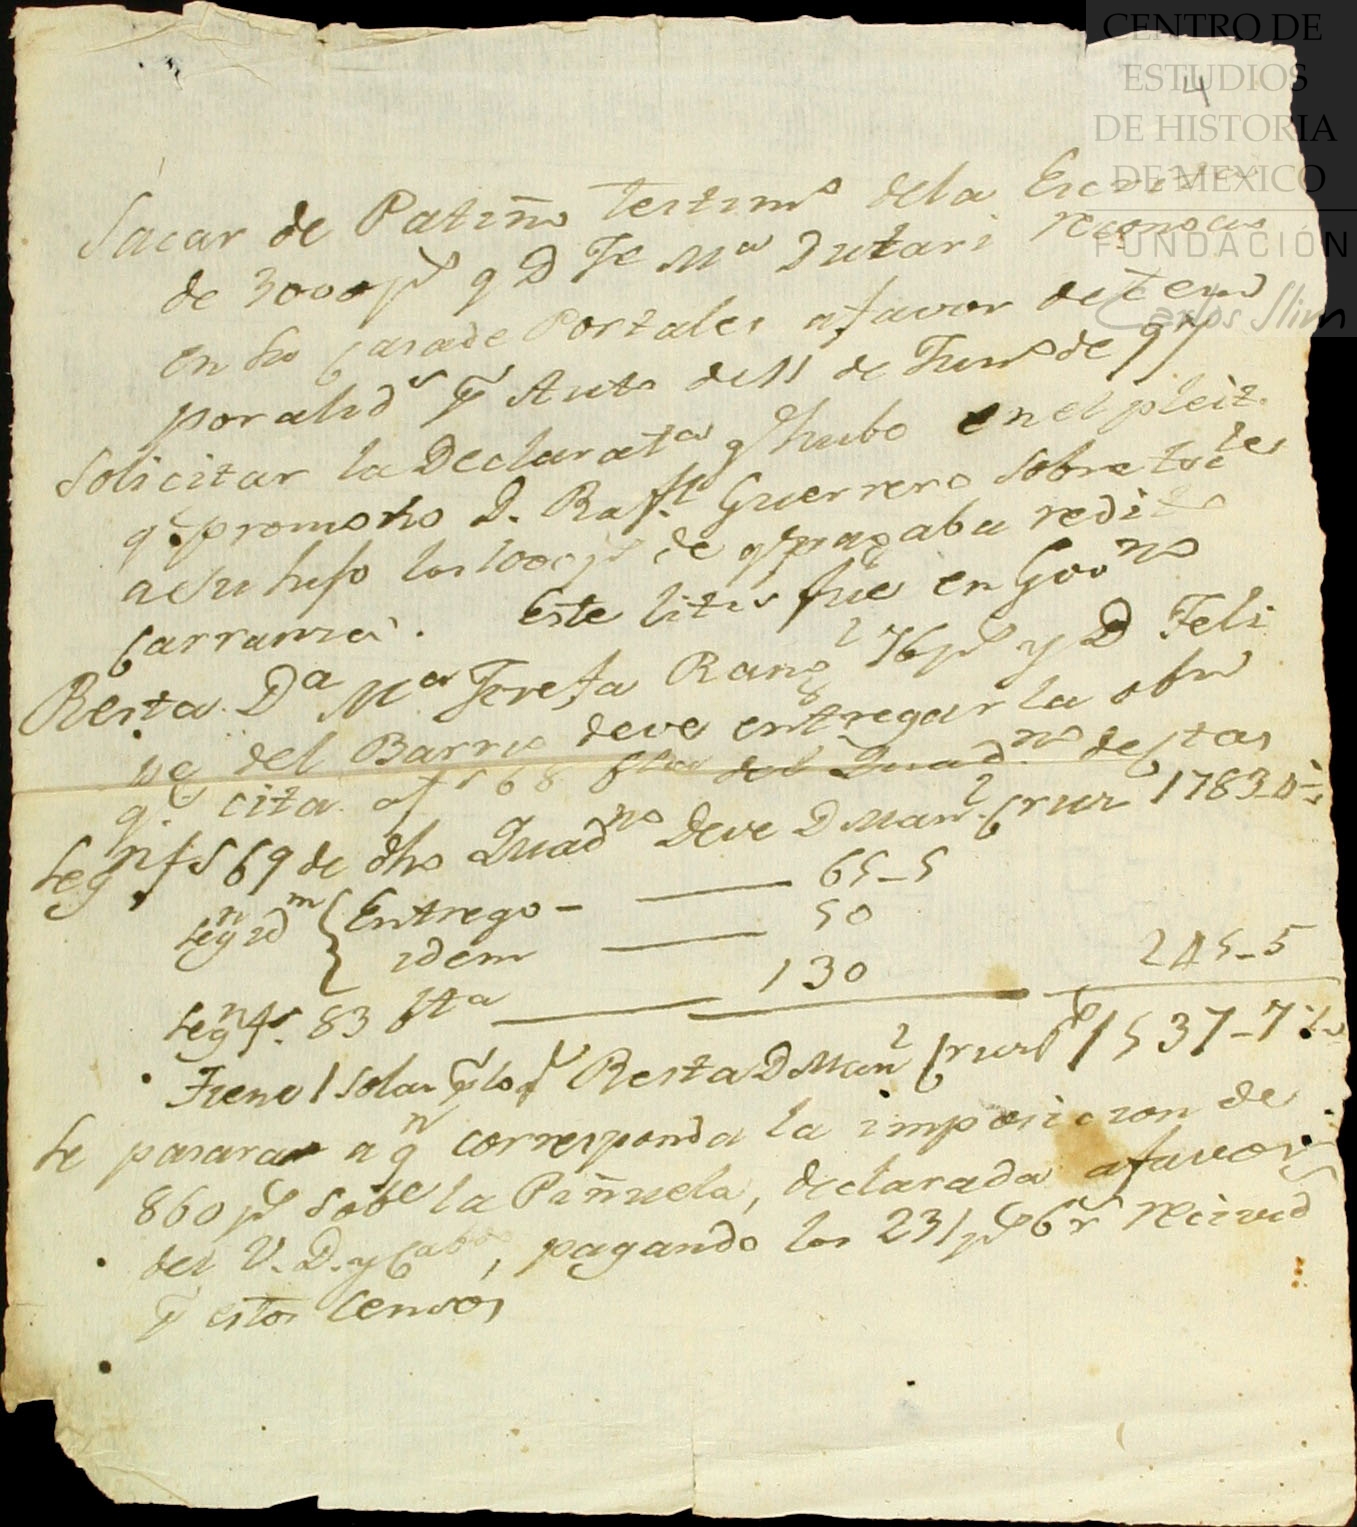 CENTRO DE
ESTUDIOS
DE HISTORIA
DE MEXICO
FUNDACIÓN
Carlos Slim
4
Sacar de Patiño Testimo dela
de 3000 ps q D Je Ma Dutari reconocio
en su Casa de Portales afavor de Tem
poralids pr Auto de 11 de Juno de 97
Solicitar la Declarata q hubo en el pleito
qe promovio D. Rafl Guerrero sobre
a su hijo los 1000 ps de q pagaba reditos
Carranza. Este litis fue en Goono
Resta Da Ma Teresa Rangl 76 ps y D Feli
pe del Barrio deve entregar la obn
qe cita afs 68 bta del Quadno de Ctas
segn fs 69 de dho Quadno Deve D Manl Cruz 1783-4
segn idm { Entrego - 65-5
idem 50
segn fs. 83 bta 130 245-5
Tiene 1 solar pr lo q Resta D Manl Cruz ps 1537-7
Se pasaran a qn corresponda la imposicion de
860 ps sobe la Piñuela, declarada afavor
del V. D. y Cabdo, pagando los 231 ps 6 rs recivid
pr estos Censos